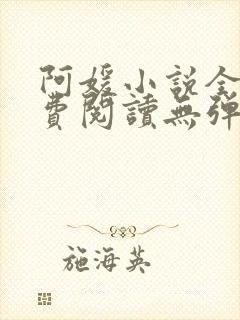 阿媛小說全
費閱讀無彈
施海英